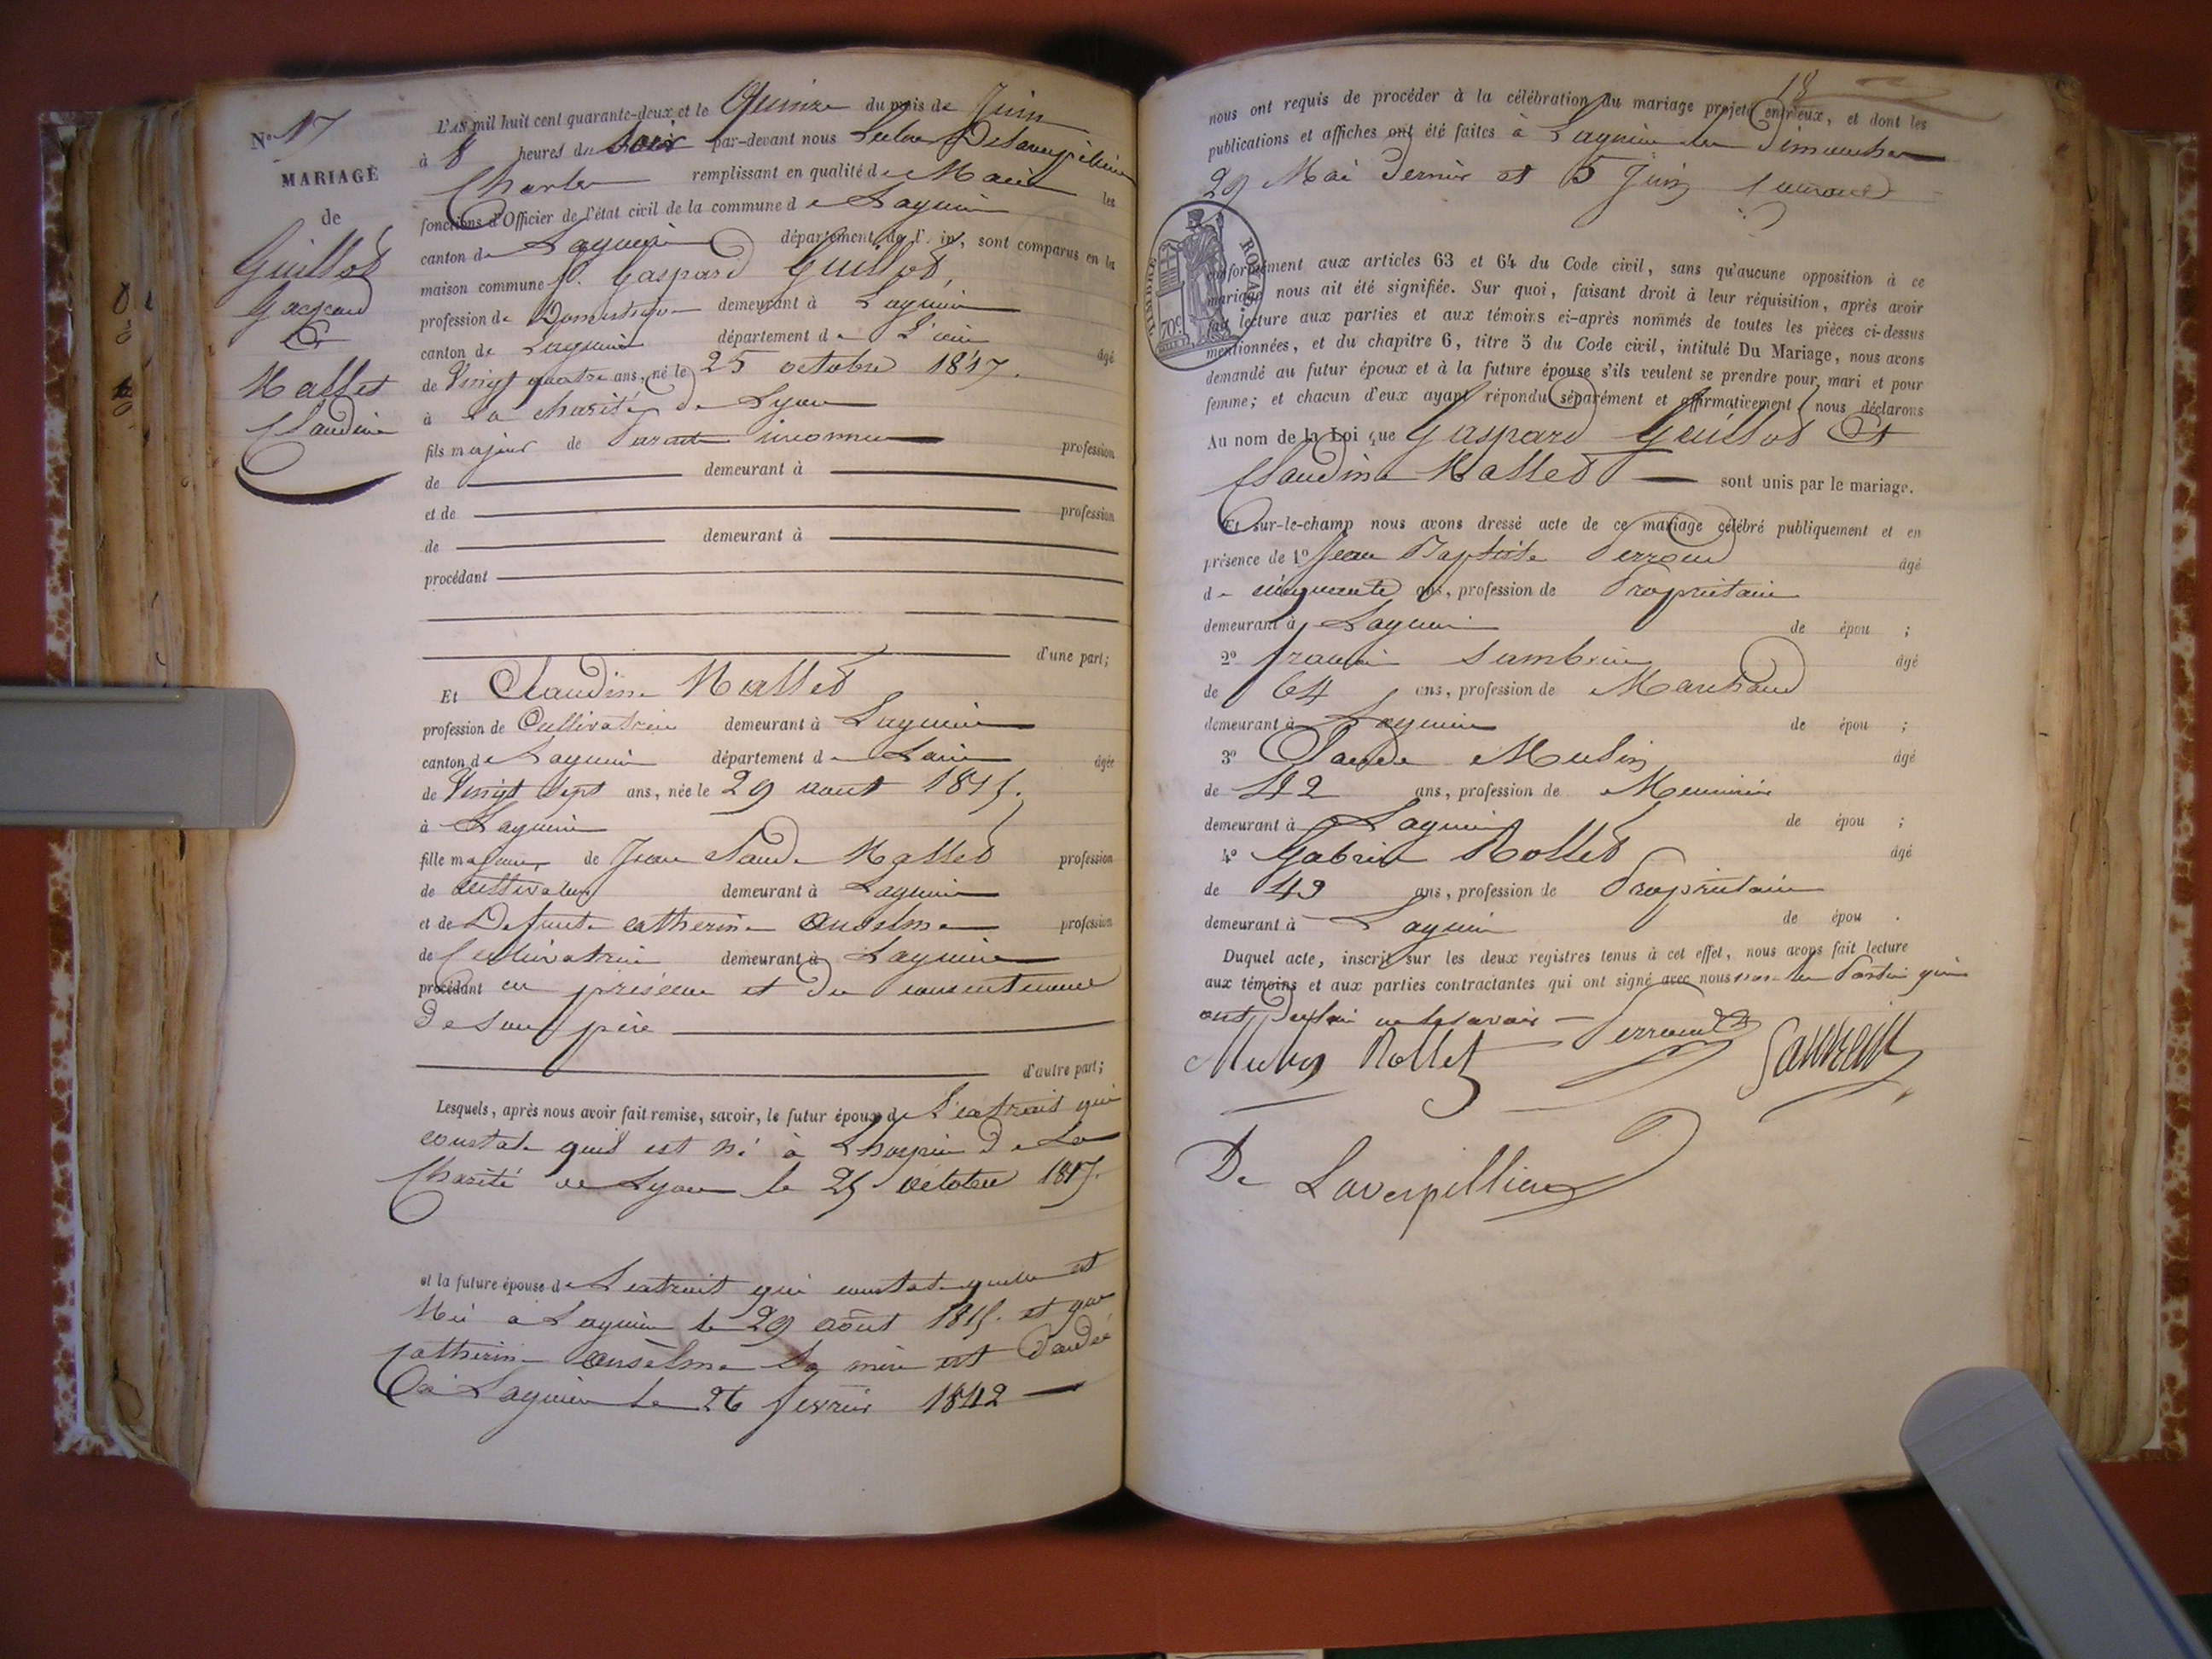 N° 17
MARIAGE
de
Guillot
Gaspard
Et
Mallet
Claudine
L'AN mil huit cent quarante-deux et le Quinze du mois de Juin
à 8 heures du soir par-devant nous Delaverpillière
Charles remplissant en qualité de Maire les
fonctions d'Officier de l'état civil de la commune de Lagnieu
canton de Lagnieu département de l'Ain, sont comparus en la
maison commune Gaspard Guillot,
profession de Domestique demeurant à Lagnieu
canton de Lagnieu département de L'ain âgé
de Vingt quatre ans, né le 25 octobre 1817.
à La charité de Lyon
fils majeur de Parents inconnus profession
de demeurant à
et de profession
de demeurant à
procédant
d'une part;
Et Claudine Mallet
profession de Cultivatrice demeurant à Lagnieu
canton de Lagnieu département de Lain âgée
de Vingt sept ans, née le 29 aout 1815.
à Lagnieu
fille majeure de Jean Claude Mallet profession
de cultivateur demeurant à Lagnieu
et de Defunte catherine Anselme profession
de Cultivatrice demeurant à Lagnieu
procédant en présence et du consentement
de son père
d'autre part;
Lesquels, après nous avoir fait remise, savoir, le futur époux de L'extrait qui
constate quil est né à Lhospice De La
Charité de Lyon le 25 octobre 1817.
et la future épouse de Lextrait qui constate quelle est
Née à Lagnieu le 29 août 1815. et que
catherine anselme Sa mère est Décédée
à Lagnieu le 26 fevrier 1842
18
nous ont requis de procéder à la célébration du mariage projeté entr'eux, et dont les
publications et affiches ont été faites à Lagnieu les Dimanches
29 Mai Dernier et 5 Juin courant
TIMBRE ROYAL
70c
conformément aux articles 63 et 64 du Code civil, sans qu'aucune opposition à ce
mariage nous ait été signifiée. Sur quoi, faisant droit à leur réquisition, après avoir
fait lecture aux parties et aux témoins ci-après nommés de toutes les pièces ci-dessus
mentionnées, et du chapitre 6, titre 5 du Code civil, intitulé Du Mariage, nous avons
demandé au futur époux et à la future épouse s'ils veulent se prendre pour mari et pour
femme; et chacun d'eux ayant répondu séparément et affirmativement, nous déclarons
Au nom de la Loi que Gaspard Guillot Et
Claudine Mallet sont unis par le mariage.
Et sur-le-champ nous avons dressé acte de ce mariage célébré publiquement et en
présence de 1° Jean Baptiste Perroud âgé
de cinquante ans, profession de Propriétaire
demeurant à Lagnieu de épou ;
2° francois âgé
de 64 ans, profession de Marchand
demeurant à Lagnieu de épou ;
3° Claude Mulin âgé
de 42 ans, profession de Menuisier
demeurant à Lagnieu de épou ;
4° Gabriel Rollet âgé
de 49 ans, profession de Propriétaire
demeurant à Lagnieu de épou .
Duquel acte, inscrit sur les deux registres tenus à cet effet, nous avons fait lecture
aux témoins et aux parties contractantes qui ont signé avec nous non les Parties qui
ont Declaré ne le savoir
Rollet Perroud
De Laverpillière